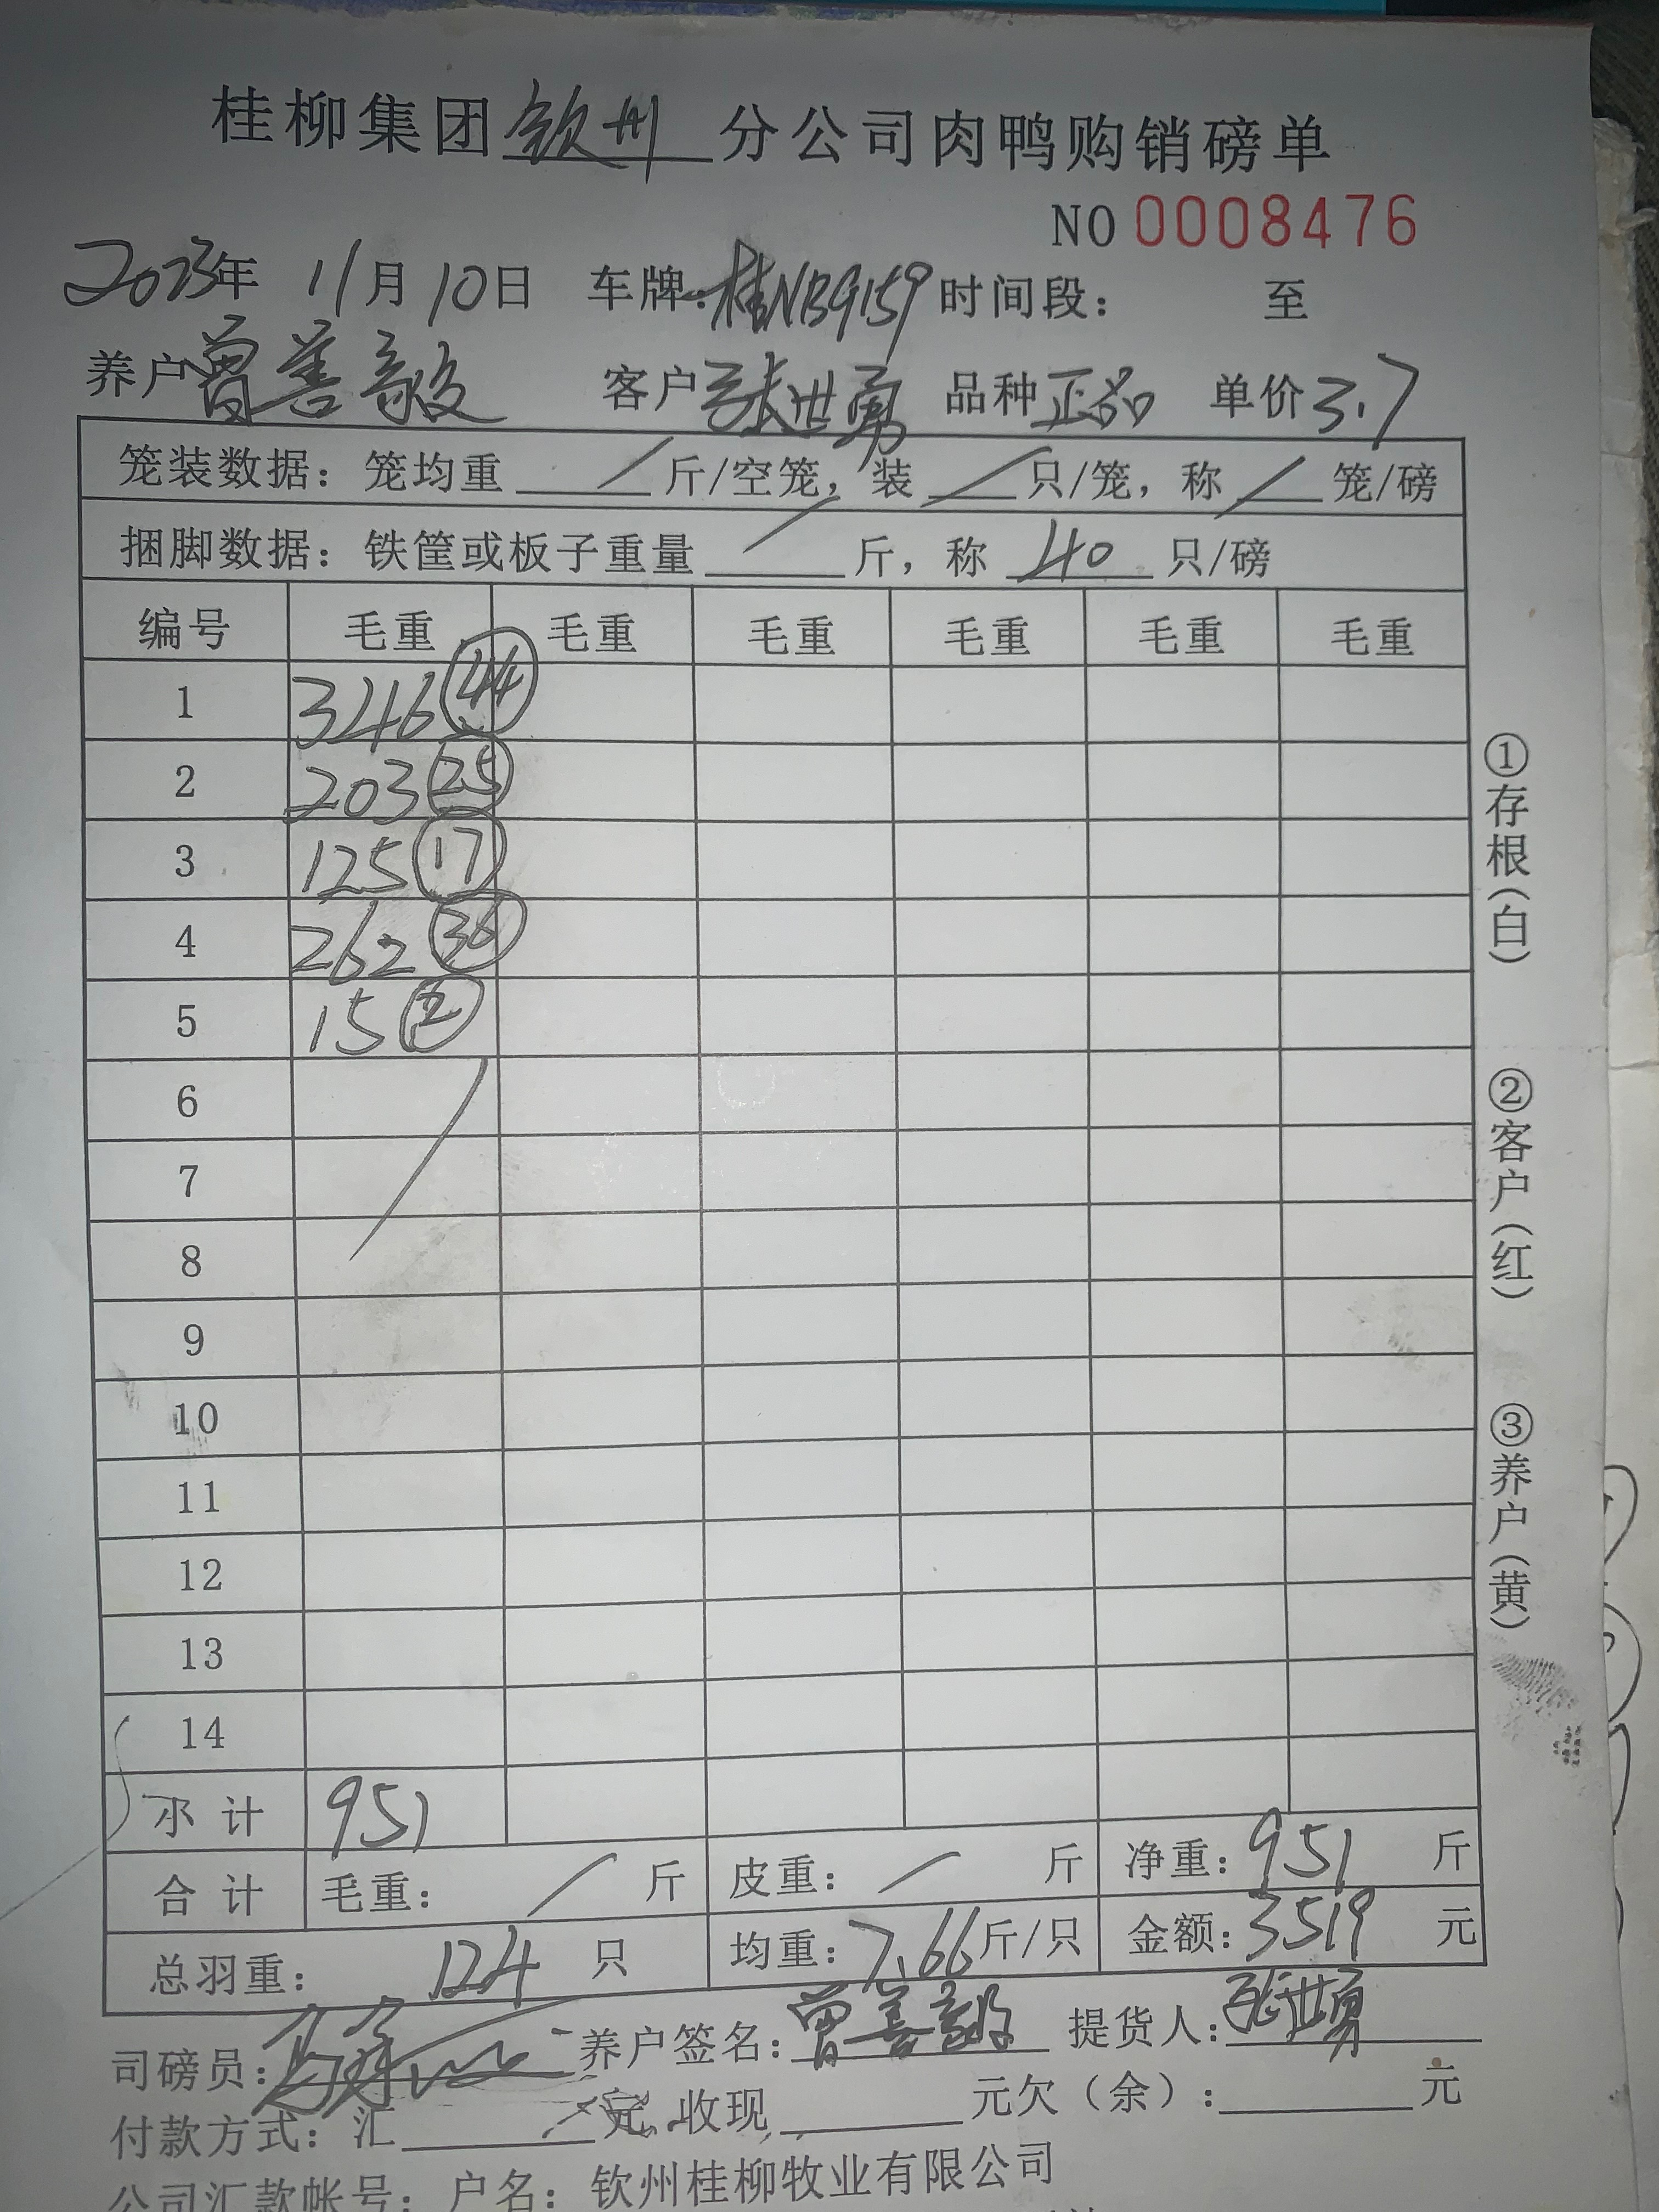 桂柳集团钦州分公司肉鸭购销磅单
NO 0008476
2023年 11月10日 车牌:桂NB9159 时间段: 至
养户曾善毅 客户张世勇 品种正品 单价3.7
笼装数据:笼均重 / 斤/空笼,装 / 只/笼,称 / 笼/磅
捆脚数据:铁筐或板子重量 / 斤,称 40 只/磅
编号 毛重 毛重 毛重 毛重 毛重 毛重
1 346 44
2 203 25
3 125 17
4 262 36
5 15 2
6
7
8
9
10
11
12
13
14
小计 951
合计 毛重: / 斤 皮重: / 斤 净重:951 斤
总羽重: 124 只 均重:7.66斤/只 金额:3519 元
司磅员: 养户签名:曾善毅 提货人:张世勇
付款方式:汇 元,收现 元欠(余): 元
公司汇款帐号:户名:钦州桂柳牧业有限公司
①存根(白)
②客户(红)
③养户(黄)